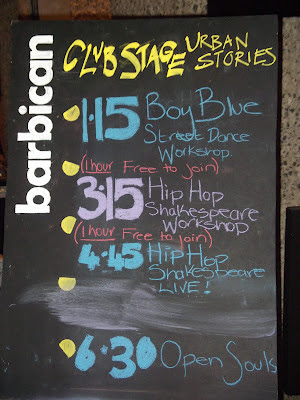 barbican
CLUB STAGE URBAN
STORIES
1.15 Boy Blue
Street Dance
Workshop.
(1 hour Free to join)
3:15 Hip Hop
Shakespeare
Workshop
(1 hour Free to join)
4.45 Hip Hop
Shakespeare
LIVE!
6.30 Open Souls